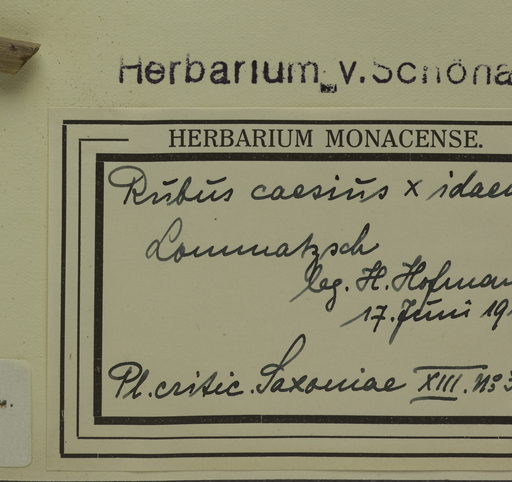 Herbarium v. Schöna
HERBARIUM MONACENSE.
Rubus caesius x idae
Lommatzsch
leg. H. Hofman
17. Juni 19
Pl. critic. Saxoniae XIII. No 3